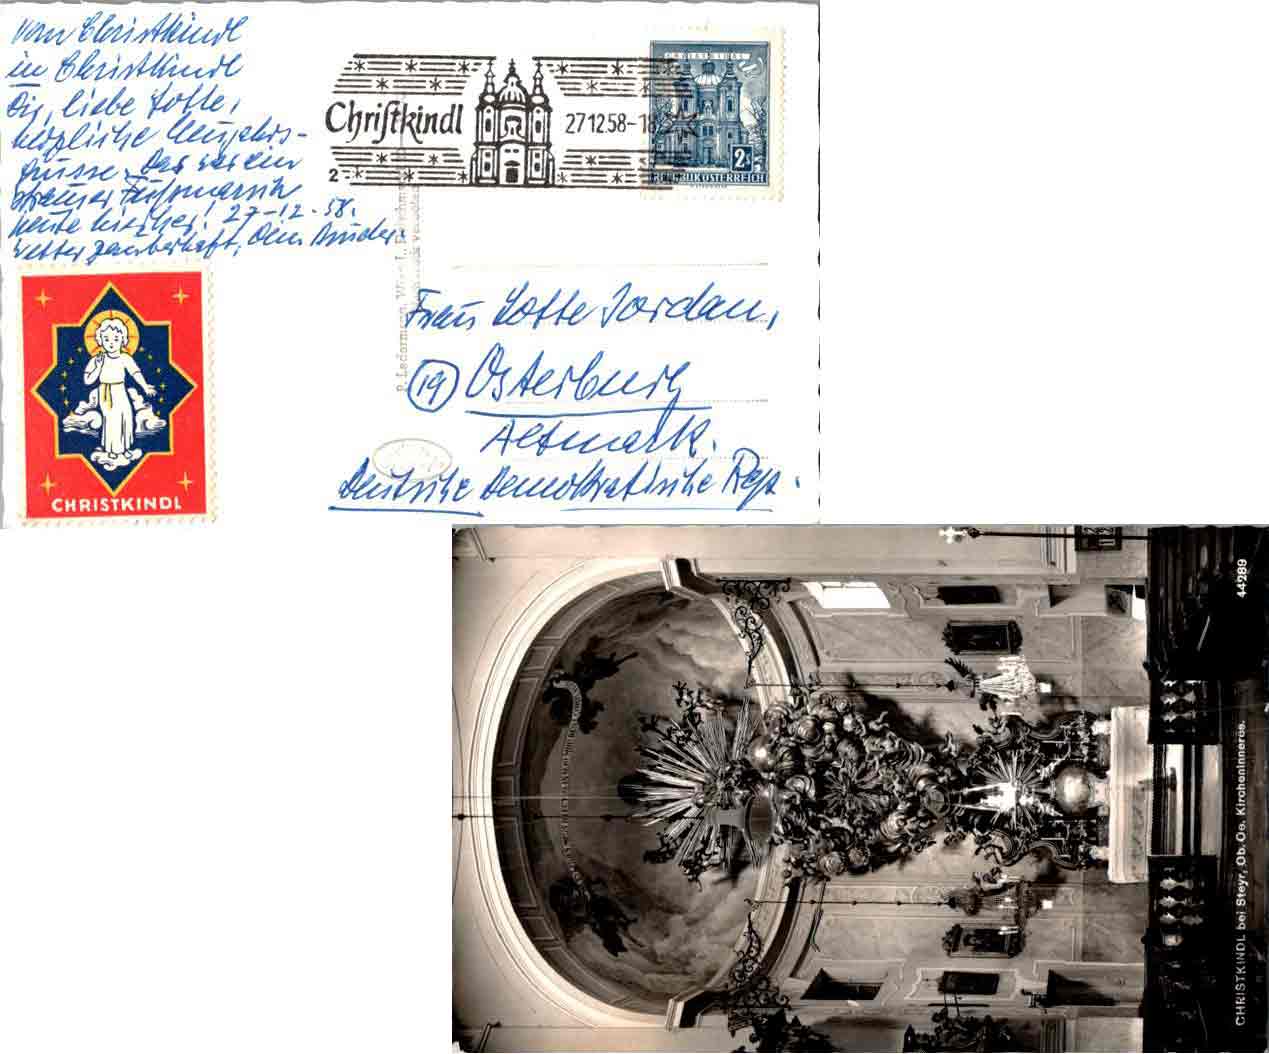 vom Christkindl
in Christkindl
Dir, liebe Lotte,
herzliche Neujahrs-
grüsse. Das war ein
strammer Fußmarsch
heute hierher! 27-12-58.
Wetter zauberhaft, Dein Bruder.
Christkindl
27.12.58-18
2
2 S
REPUBLIK ÖSTERREICH
P. Ledermann, Wien I.,
Frau Lotte Jordan,
(19) Osterburg
Altmark.
Deutsche Demokratische Rep.
CHRISTKINDL
CHRISTKINDL bei Steyr, Ob. Oe. Kircheninneres.
44289